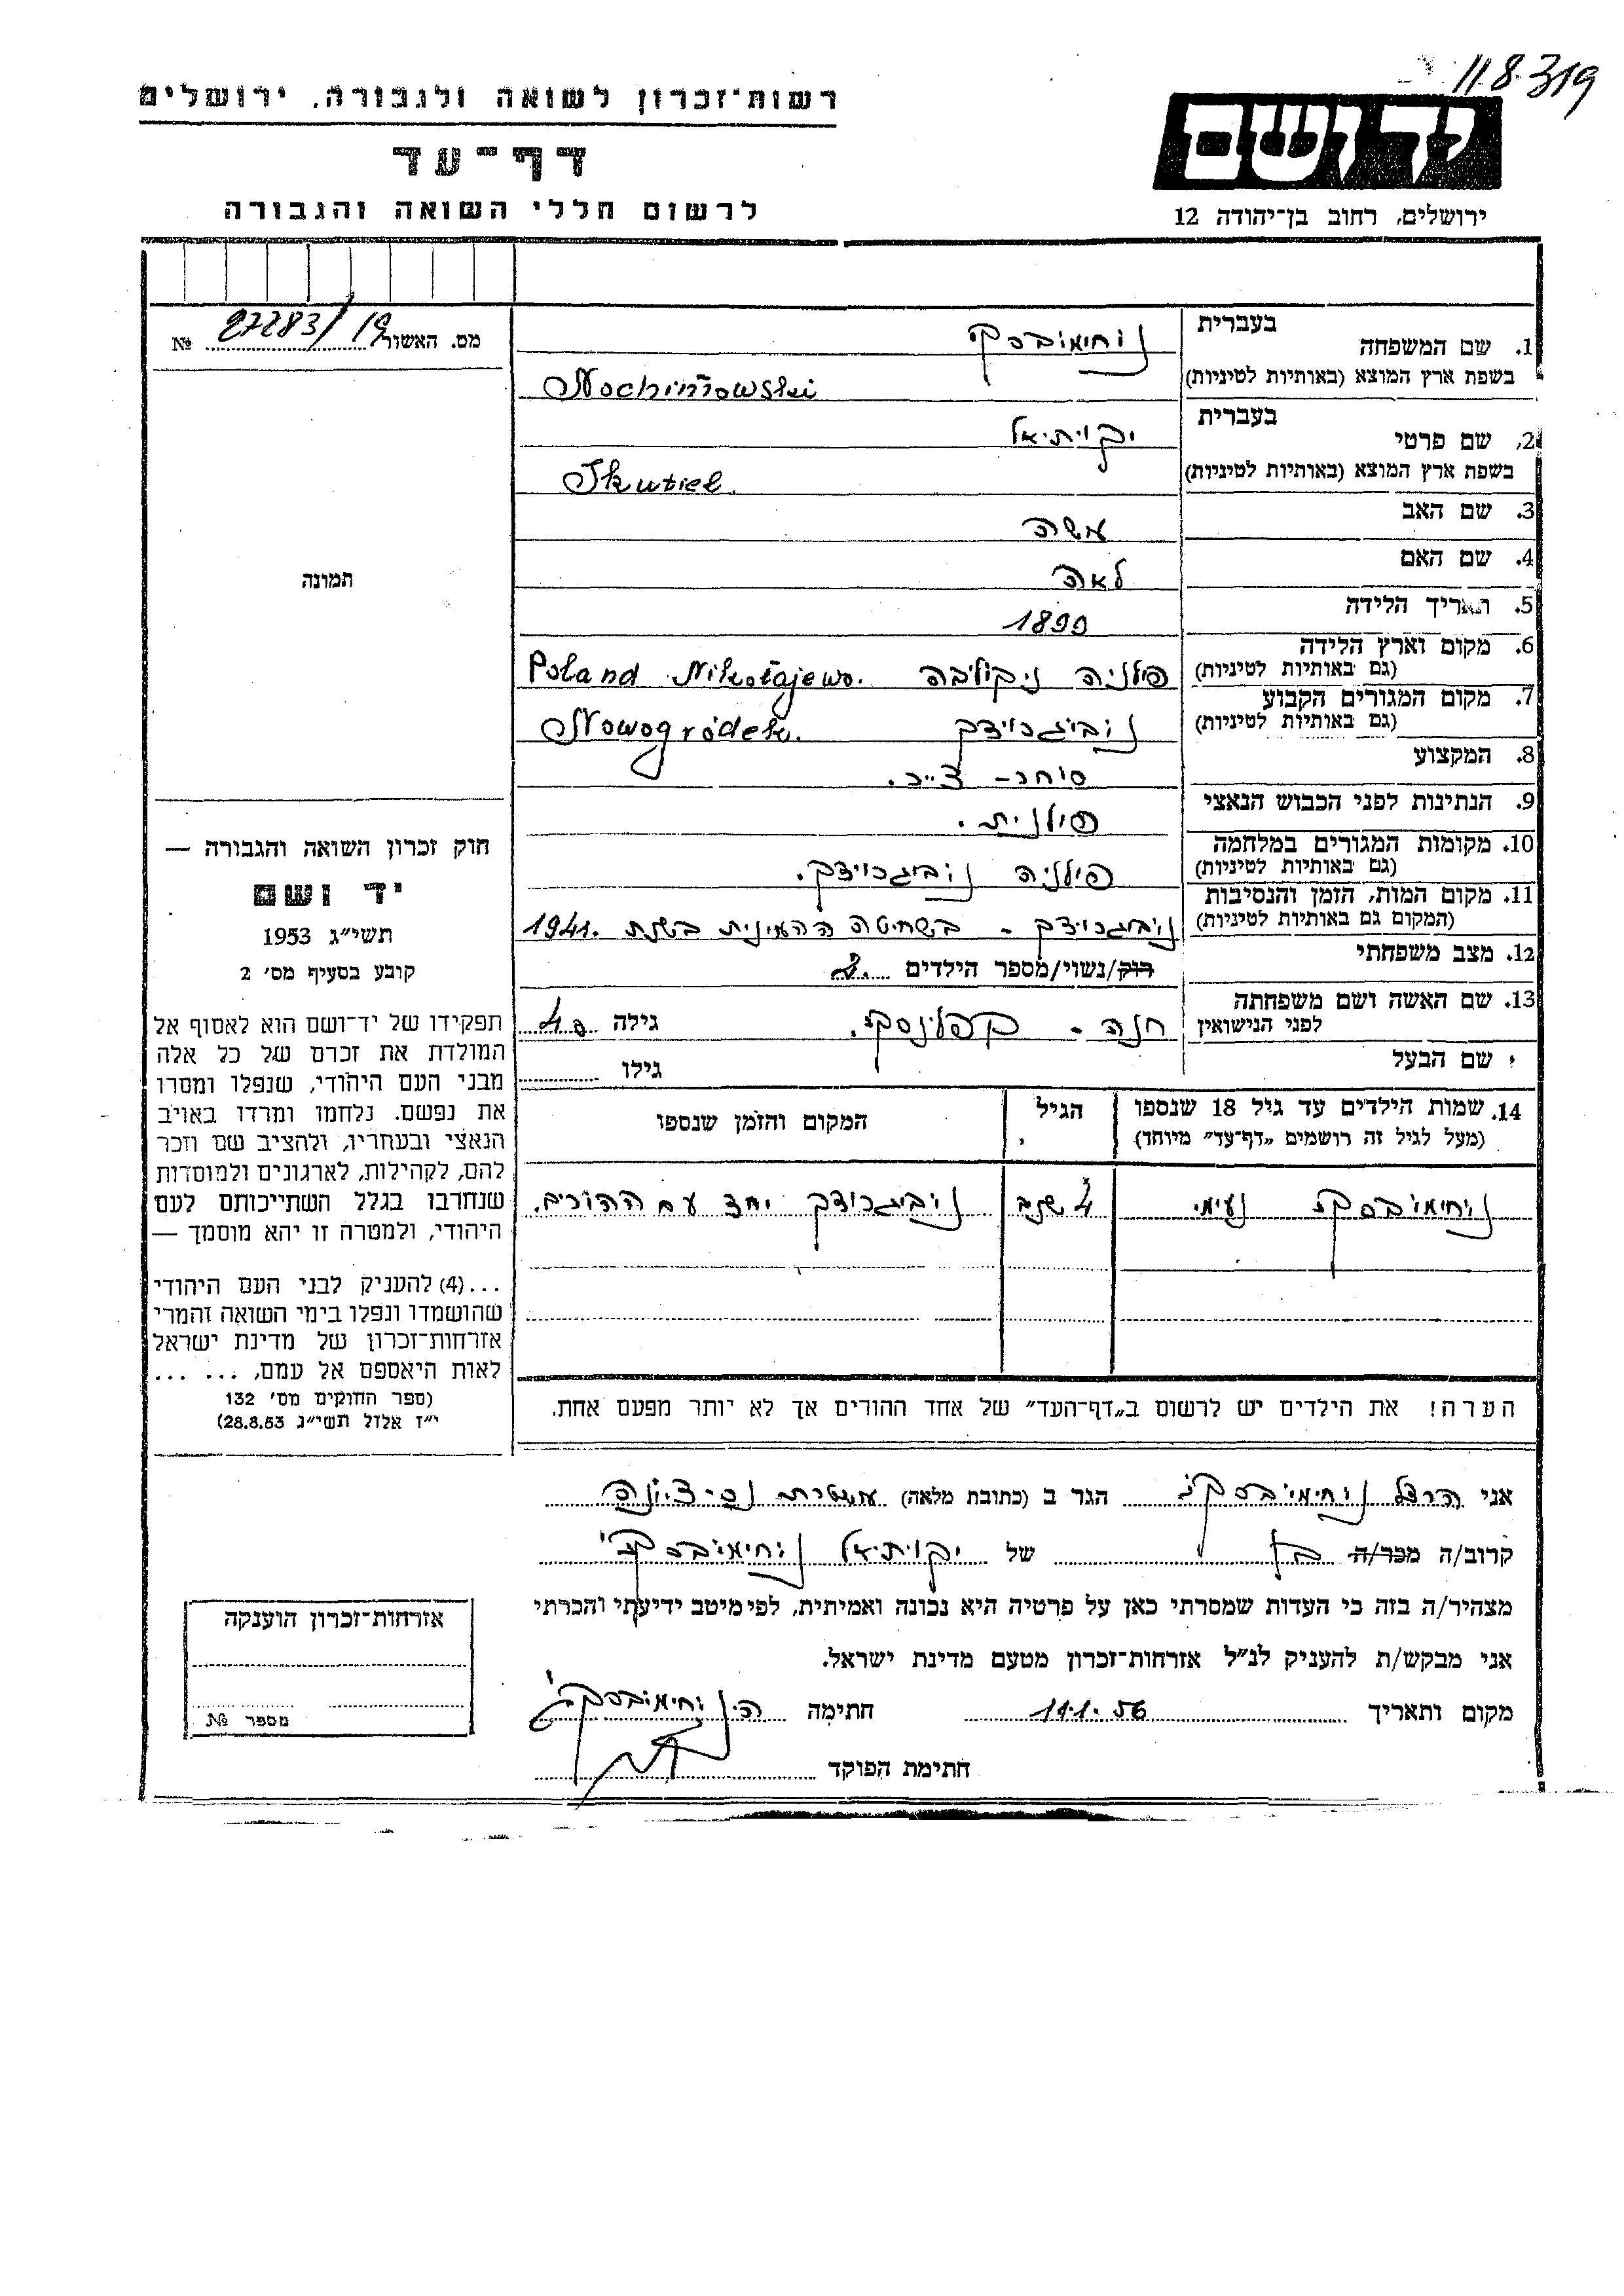 11.8.319
רשות־זכרון לשואה ולגבורה, ירושלים
דף־עד
לרשום חללי השואה והגבורה
יד ושם
ירושלים, רחוב בן־יהודה 12
מס. האשור 27283/19 №
תמונה
חוק זכרון השואה והגבורה —
יד ושם
תשי״ג 1953
קובע בסעיף מס׳ 2
תפקידו של יד־ושם הוא לאסוף אל
המולדת את זכרם של כל אלה
מבני העם היהודי, שנפלו ומסרו
את נפשם. נלחמו ומרדו באויב
הנאצי ובעוזריו, ולהציב שם וזכר
להם, לקהילות, לארגונים ולמוסדות
שנחרבו בגלל השתייכותם לעם
היהודי, ולמטרה זו יהא מוסמך —
...(4) להעניק לבני העם היהודי
שהושמדו ונפלו בימי השואה והמרי
אזרחות־זכרון של מדינת ישראל
לאות היאספם אל עמם, ... ...
(ספר החוקים מס׳ 132
י״ז אלול תשי״ג 28.8.53)
1. שם המשפחה
בעברית נוחימובסקי
בשפת ארץ המוצא (באותיות לטיניות) Nochimowski
2. שם פרטי
בעברית יקותיאל
בשפת ארץ המוצא (באותיות לטיניות) Ikutiel
3. שם האב משה
4. שם האם לאה
5. תאריך הלידה 1899
6. מקום וארץ הלידה
(גם באותיות לטיניות) פולניה ניקוליבה Poland Nikołajewo.
7. מקום המגורים הקבוע
(גם באותיות לטיניות) נוביגרודק Nowogródek.
8. המקצוע סוחר-
9. הנתינות לפני הכבוש הנאצי פולנית.
10. מקומות המגורים במלחמה
(גם באותיות לטיניות) פולניה נוביגרודק.
11. מקום המות, הזמן והנסיבות
(המקום גם באותיות לטיניות) נוביגרודק - בשחיטה בשנת 1941.
12. מצב משפחתי
רוק/נשוי/מספר הילדים
13. שם האשה ושם משפחתה
לפני הנישואין חנה - קפלינסקי. גילה 40
שם הבעל גילו
14. שמות הילדים עד גיל 18 שנספו
(מעל לגיל זה רושמים „דף־עד״ מיוחד)
הגיל
המקום והזמן שנספו
נוחימובסקי נעימי שנים נוביגרודק יחד עם ההורים.
הערה! את הילדים יש לרשום ב„דף־העד״ של אחד ההורים אך לא יותר מפעם אחת.
אני הרצל נוחימובסקי הגר ב (כתובת מלאה) נס-ציונה
קרוב/ה מכר/ה בן של יקותיאל נוחימובסקי
מצהיר/ה בזה כי העדות שמסרתי כאן על פרטיה היא נכונה ואמיתית, לפי מיטב ידיעתי והכרתי
אני מבקש/ת להעניק לנ״ל אזרחות־זכרון מטעם מדינת ישראל.
מקום ותאריך 11.1.56 חתימה ה. נוחימובסקי
חתימת הפוקד
אזרחות־זכרון הוענקה
מספר №